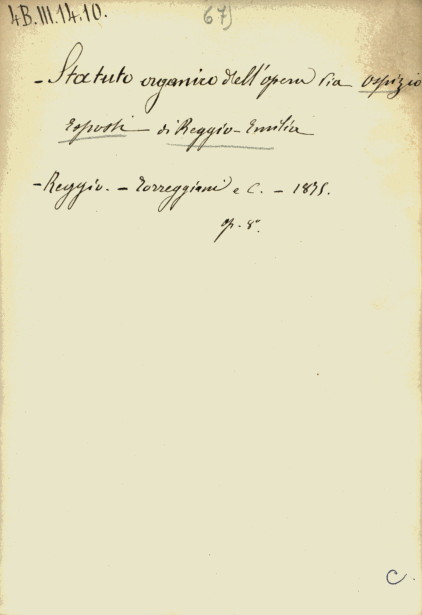 4B.III.14.10.
67)
- Statuto organico dell'opera Pia Ospizio
Esposti - di Reggio-Emilia
- Reggio. - Torreggiani e C. - 1875.
op. 8°.
C.